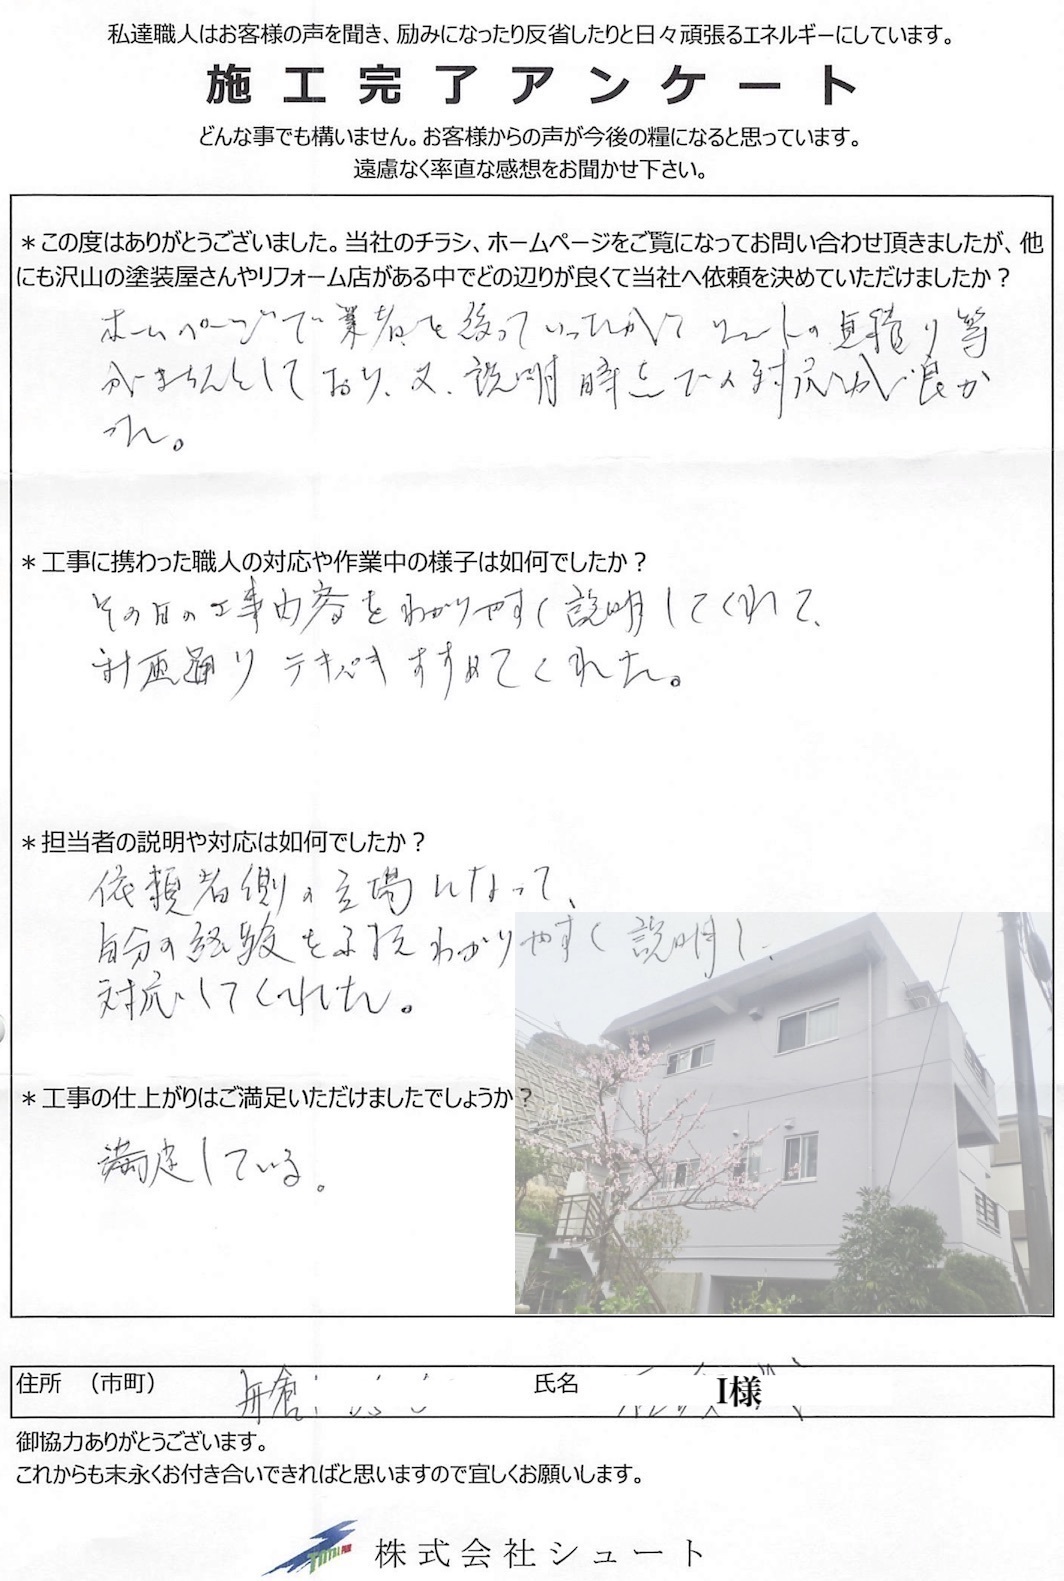 私達職人はお客様の声を聞き、励みになったり反省したりと日々頑張るエネルギーにしています。
施工完了アンケート
どんな事でも構いません。お客様からの声が今後の糧になると思っています。
遠慮なく率直な感想をお聞かせ下さい。
＊この度はありがとうございました。当社のチラシ、ホームページをご覧になってお問い合わせ頂きましたが、他
にも沢山の塗装屋さんやリフォーム店がある中でどの辺りが良くて当社へ依頼を決めていただけましたか？
ホームページで業者を絞っていったが、見積り等
がきちんとしており、又、説明時の対応が良か
った。
＊工事に携わった職人の対応や作業中の様子は如何でしたか？
その日の工事内容をわかりやすく説明してくれて、
計画通りテキパキすすめてくれた。
＊担当者の説明や対応は如何でしたか？
依頼者側の立場になって、
自分の経験をふまえわかりやすく説明し、
対応してくれた。
＊工事の仕上がりはご満足いただけましたでしょうか？
満足している。
住所　（市町）　氏名　I様
御協力ありがとうございます。
これからも末永くお付き合いできればと思いますので宜しくお願いします。
株式会社シュート